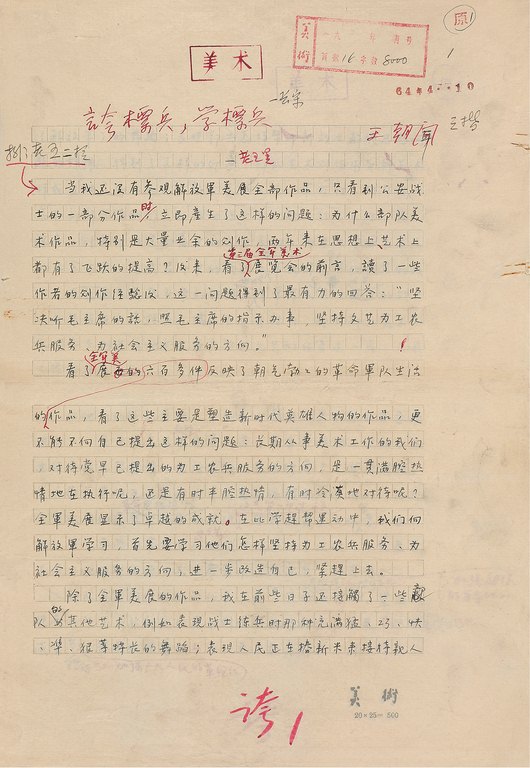 原1
美術 一九 年 期号
頁数16 字数8000
1
美术
644--10
誇標兵，学標兵
王朝闻
王朝闻
一 当我还没有参观解放軍美展全部作品，只看到公安战
士的一部分作品时，立即產生了这样的问题：为什么部队美
术作品，特别是大量业余的创作，两年来在思想上艺术上
第三届全军美术
都有了飞跃的提高？后来，看了展览会的前言，讀了一些
作者的创作经验谈，这一问题得到了最有力的回答："坚
决听毛主席的話，照毛主席的指示办事，坚持文艺为工农
兵服务、为社会主义服务的方向。"
全军美
看了展的六百多件反映了朝气勃々的革命軍队生活
的作品，看了这些主要是塑造新时代英雄人物的作品，更
不能不向自己提出这样的问题：长期从事美术工作的我们
，对待党早已提出的为工农兵服务的方向，是一貫滿腔热
情地在执行呢，还是有时半腔热情，有时冷漠地对待呢？
全軍美展显示了卓越的成就。在比学趕帮運动中，我们向
解放軍学习，首先要学习他们怎样坚持为工农兵服务、为
社会主义服务的方向，進一步改造自己，紧趕上去。
除了全軍美展的作品，我在前些日子还接觸了一些部
队的其他艺术，例如表現战士練兵时那种充满猛、巧、快
、準、狠等特长的舞蹈；表現人民正在擔新米接待親人
美術
20×25=500
誇1